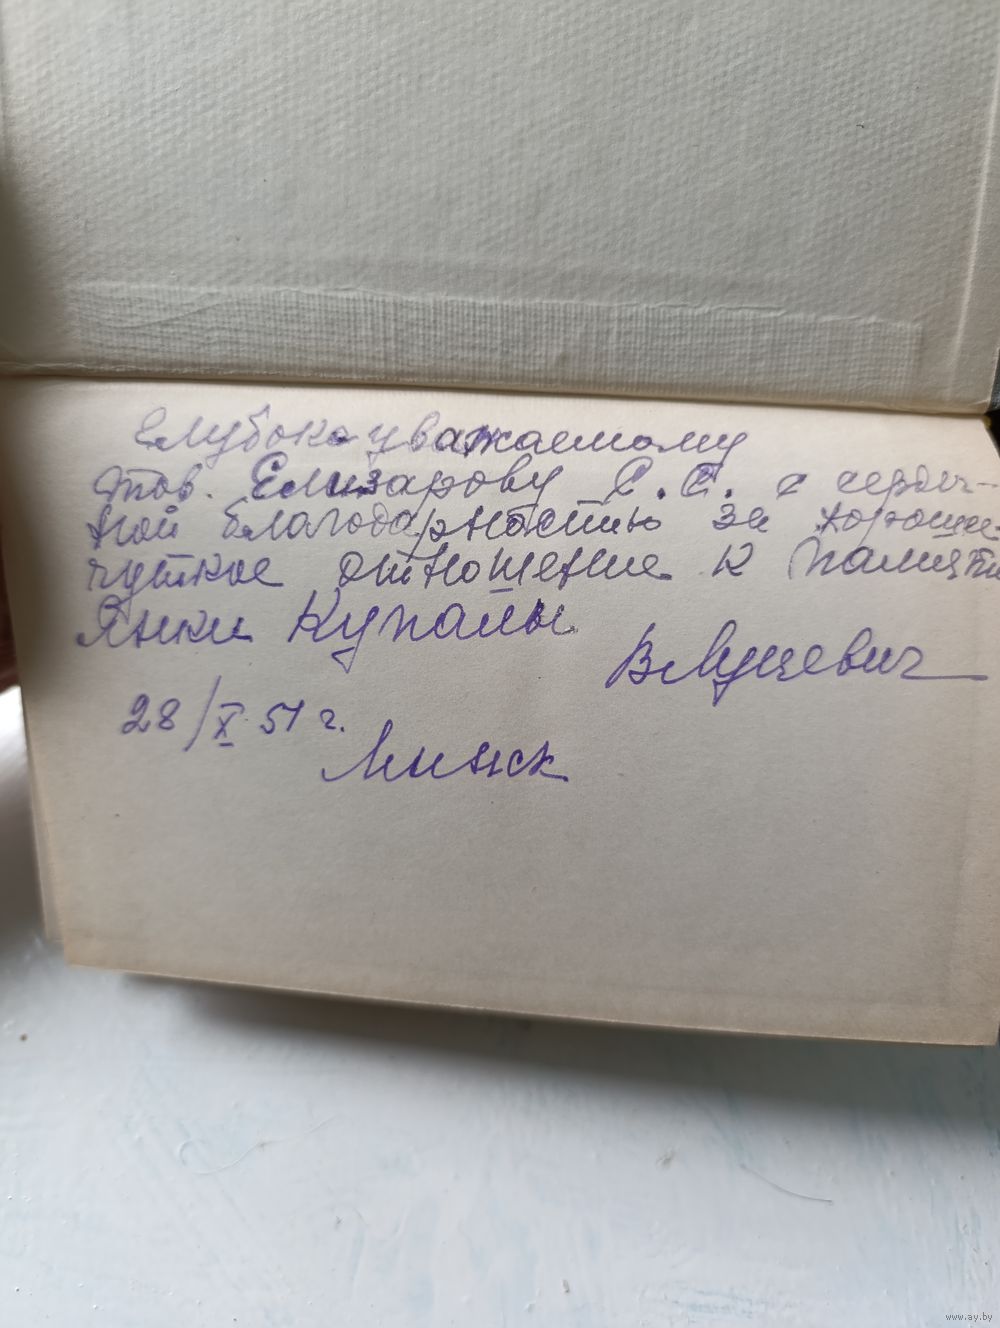 Глубокоуважаемому
тов. Елизарову С. С. с сердеч-
ной благодарностью за хорошее
чуткое отношение к памяти
Янки Купалы
ВЛуцевич
28/X 51 г.
Минск
www.ay.by